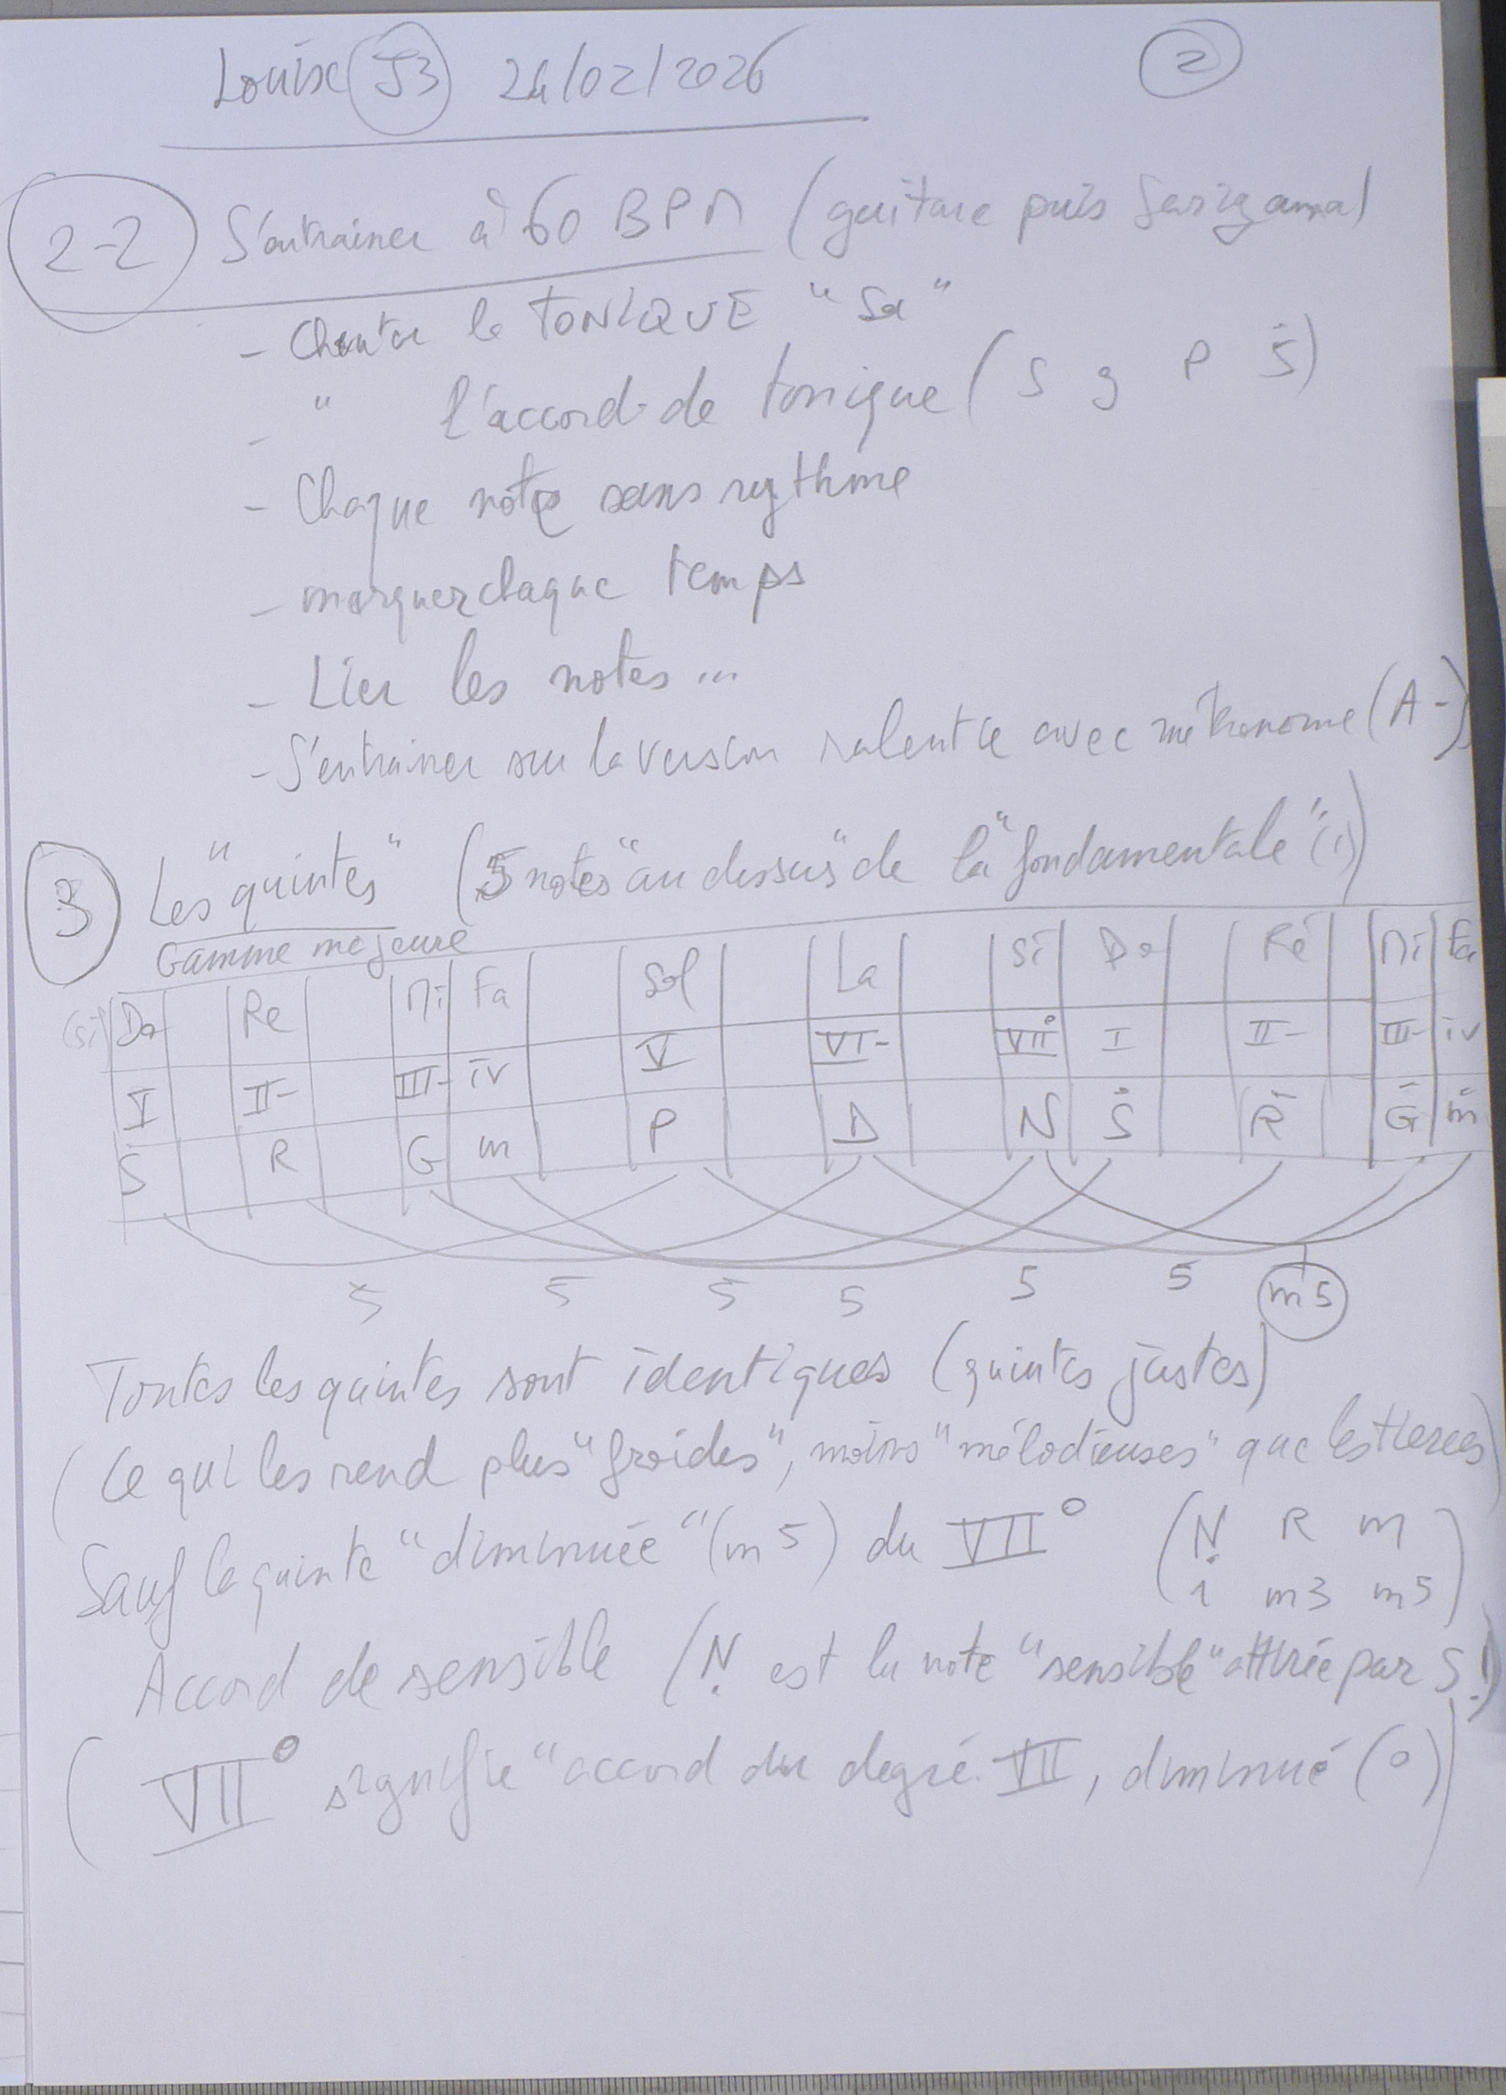 Louise J3 24/02/2026 2
2-2 S'entrainer à 60 BPM (guitare puis Sarigama)
- Chanter la TONIQUE "Sa"
- " l'accord de tonique (S g P Ṡ)
- Chaque note sans rythme
- marquer chaque temps
- Lier les notes ...
- S'entrainer sur la version ralentie avec métronome (A-)
3 Les "quintes" (5 notes "au dessus" de la "fondamentale" (1))
Gamme majeure
(si) Do Re Mi Fa Sol La Si Do Ré Mi Fa
I II- III- IV V VI- VII° I II- III- IV
S R G m P D N Ṡ Ṙ Ġ ṁ
5 5 5 5 5 5 m5
Toutes les quintes sont identiques (quintes justes)
(Ce qui les rend plus "froides", moins "mélodieuses" que les tierces)
Sauf la quinte "diminuée" (m5) du VII° (Ṇ R m
1 m3 m5)
Accord de sensible (Ṇ est la note "sensible" attirée par S !)
(VII° signifie "accord du degré VII, diminué (°)